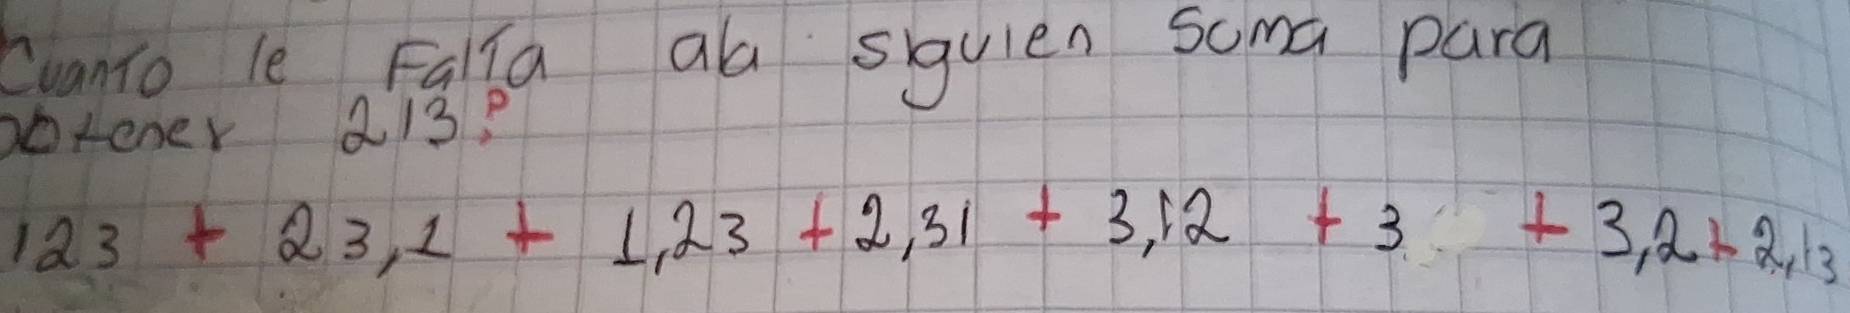 Cuanto le Falta ala siguien Suma para
obtener 213?
123 + 23,1 + 1,23 + 2,31 + 3,12 + 3 + 3,2 + 2,13